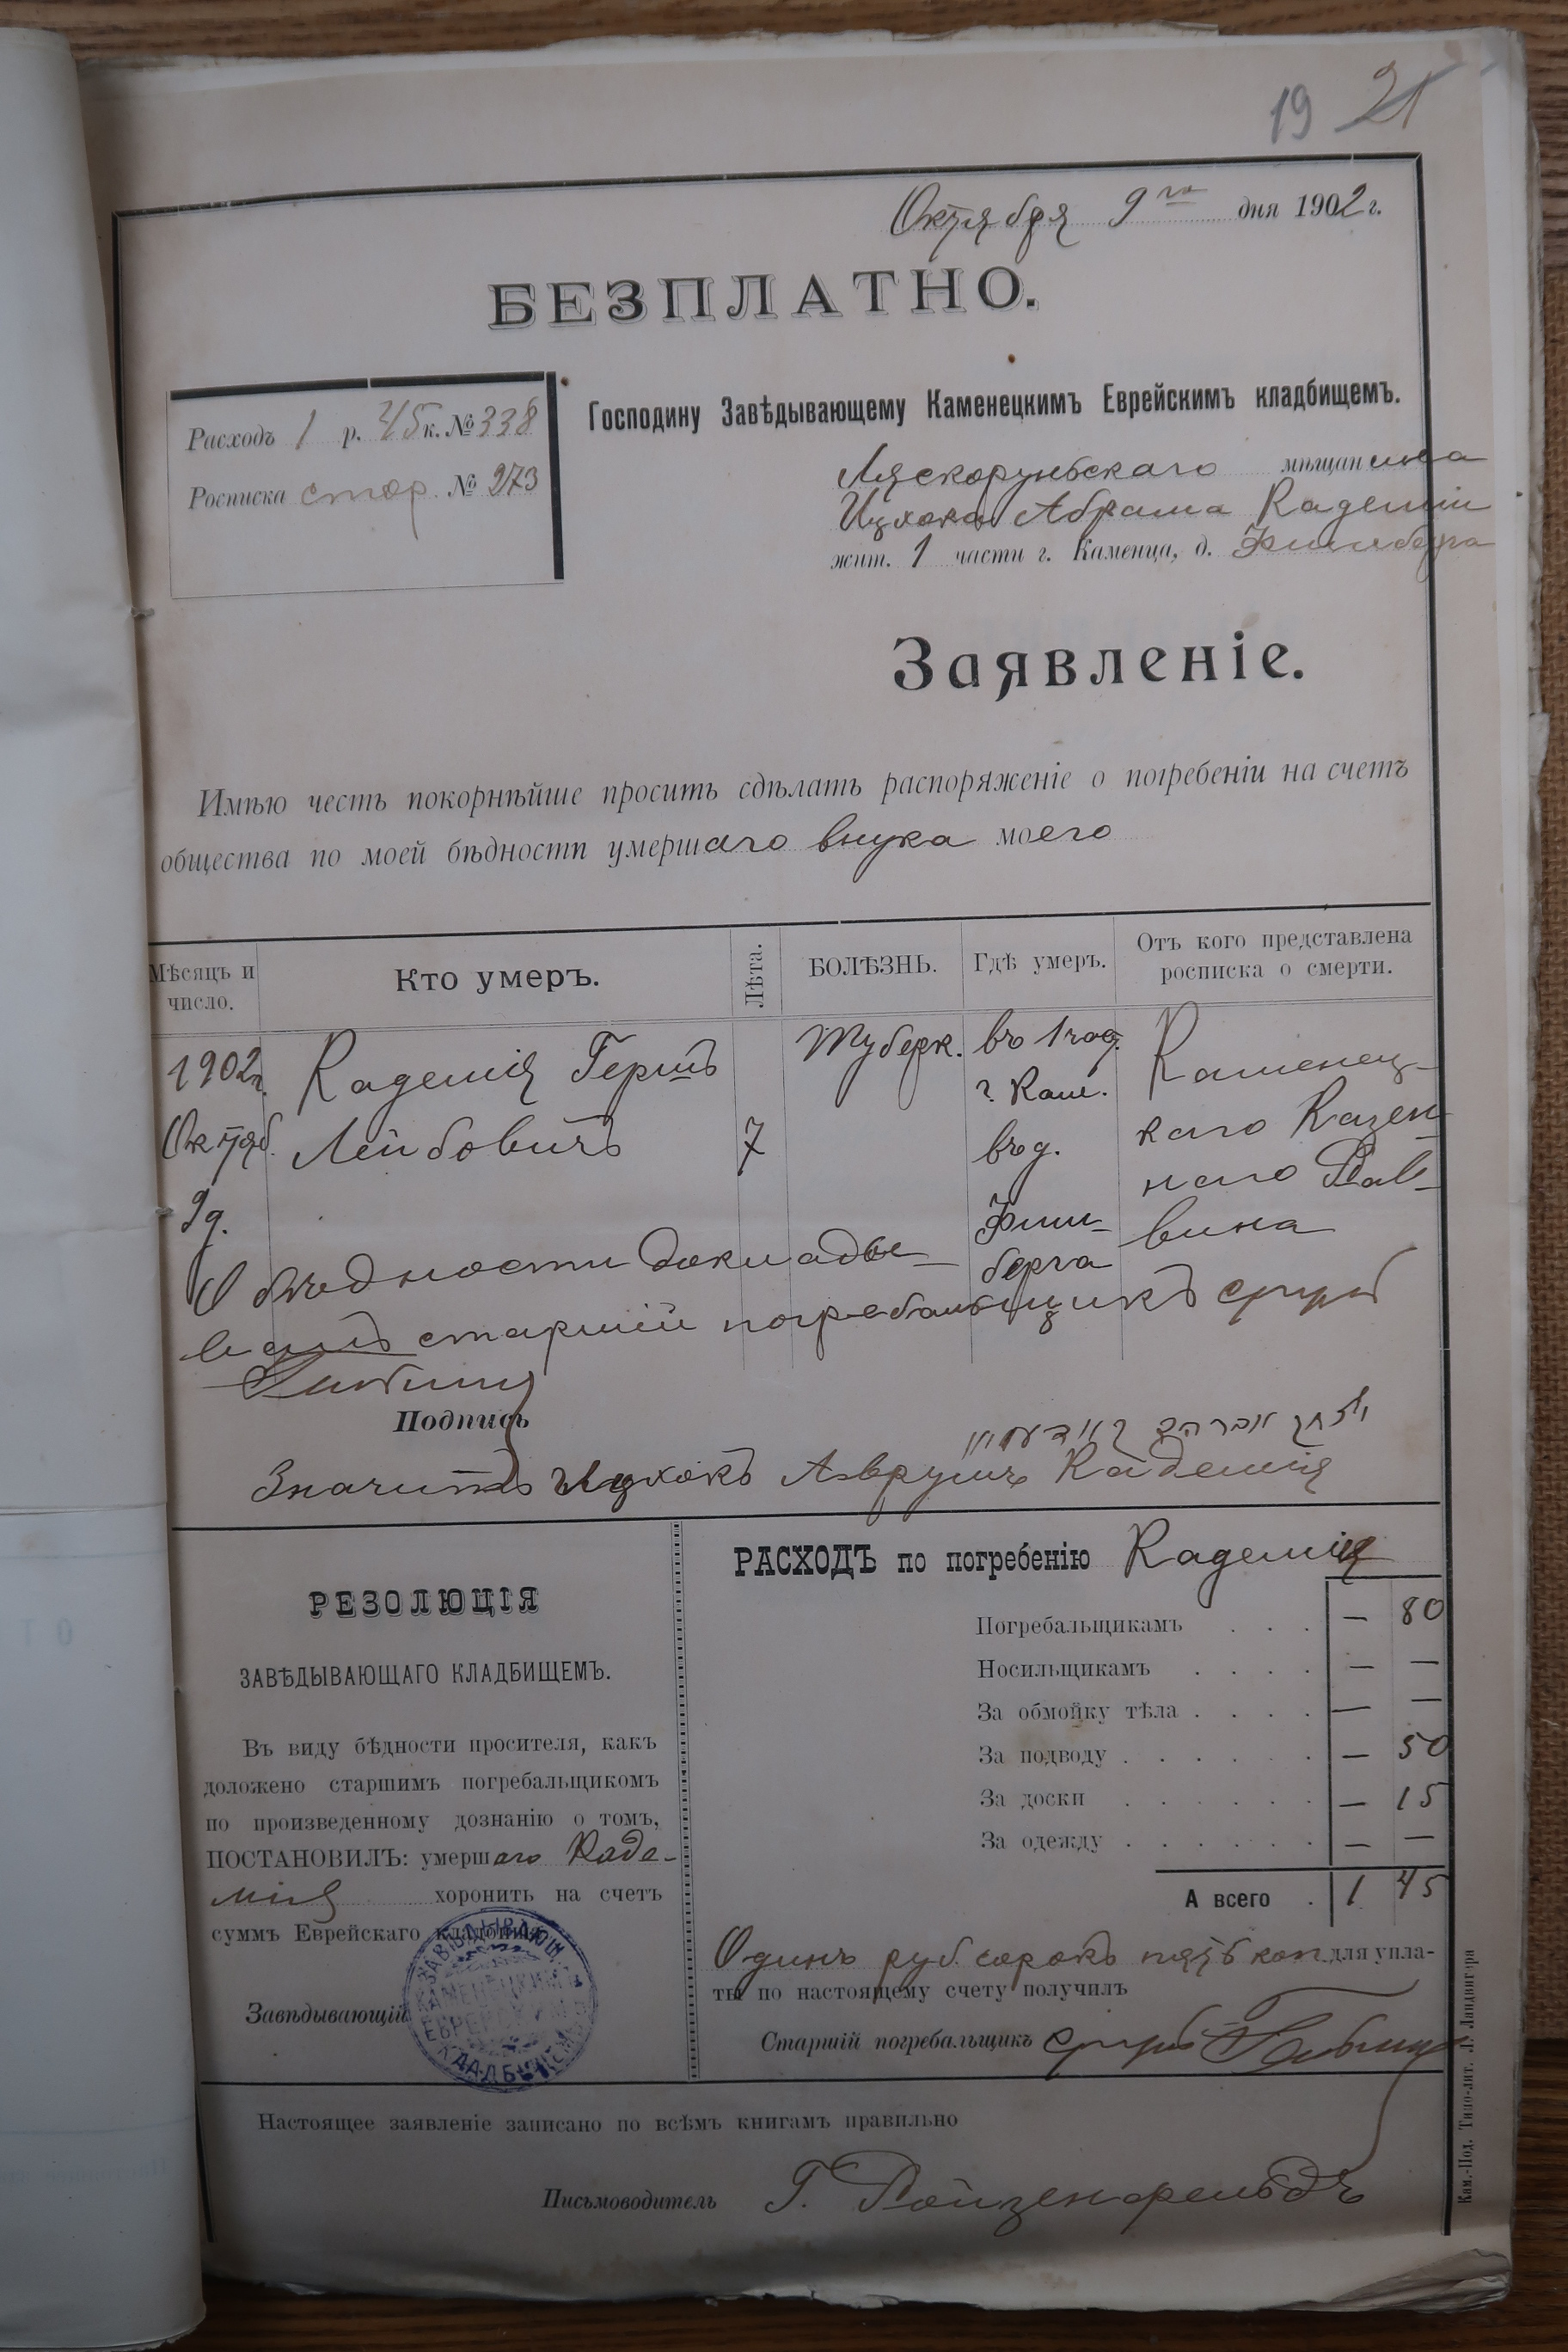 19 21
Октября 9го дня 1902 г.
БЕЗПЛАТНО.
Расходъ 1 р. 45 к. № 338
Росписка стар. № 273
Господину Завѣдывающему Каменецкимъ Еврейскимъ кладбищемъ.
Ляскоруньскаго мѣщанина
Ицхока Абрама Кадемія
жит. 1 части г. Каменца, д.
Заявленіе.
Имѣю честь покорнѣйше просить сдѣлать распоряженіе о погребеніи на счетъ
общества по моей бѣдности умершаго внука моего
Мѣсяцъ и число. Кто умеръ. Лѣта. БОЛѢЗНЬ. Гдѣ умеръ. Отъ кого представлена росписка о смерти.
1902г. Кадемія Гершъ Туберк. въ 1 час. Каменец-
г. Кам.
Октяб. Лейбовичъ 7 въ д. каго Казен-
9 д. наго Рав-
вина
О бѣдности докладыв-
старшій погребальщикъ
Подпись
יצחק אברהם קאדעמיא
Значитъ Ицхокъ Аврумъ Кадемія
РЕЗОЛЮЦІЯ
ЗАВѢДЫВАЮЩАГО КЛАДБИЩЕМЪ.
Въ виду бѣдности просителя, какъ
доложено старшимъ погребальщикомъ
по произведенному дознанію о томъ,
ПОСТАНОВИЛЪ: умершаго Каде-
мія хоронить на счетъ
суммъ Еврейскаго кладбища.
Завѣдывающій
ЗАВѢДЫВАЮЩ. КАМЕНЕЦКИМЪ ЕВРЕЙСКИМЪ КЛАДБИЩЕМЪ
РАСХОДЪ по погребенію Кадемія
Погребальщикамъ . . . — 80
Носильщикамъ . . . . — —
За обмойку тѣла . . . . — —
За подводу . . . . . . — 50
За доски . . . . . . — 15
За одежду . . . . . . — —
А всего . 1 45
Одинъ руб. сорокъ пять коп. для упла-
ты по настоящему счету получилъ
Старшій погребальщикъ
Настоящее заявленіе записано по всѣмъ книгамъ правильно
Письмоводитель Г. Ройзенфельдъ
Кам.-Под. Типо-лит. Л. Ландвигера